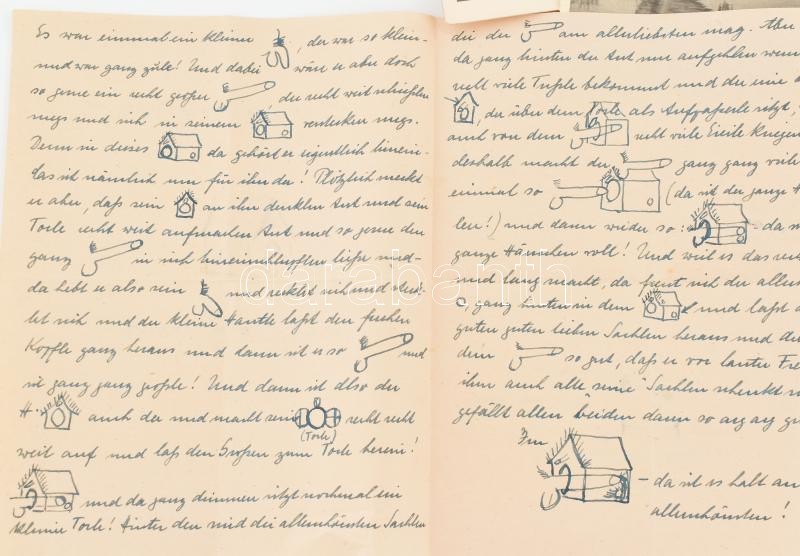 Es war einmal ein kleiner , der war so klein-
und war ganz zule! Und dabei wäre er aber doch
so gerne ein recht großer , der recht weit
mags und sich in seinem verstecken mags.
Denn in dieses da gehört er eigentlich hinein-
das ist nämlich nur für ihn da! Plötzlich merkt
er aber, daß sein an ihn denken tut und sein
Torle recht weit aufmachen tut und so gerne den
ganz in sich hineinschlupfen ließe und-
da hebt er also sein und recktet sich und
let sich und der kleine Hautle laßt den frechen
Köpfle ganz heraus und dann ist er so und
ist ganz ganz größle! Und dann ist also der
H. auch da und macht sein recht recht
(Torle)
weit auf und laß den Großen zum Torle herein!
und da ganz drinnen sitzt nochmal ein
kleines Torle! Hinter den sind die allerschönsten Sachlen
die der am allerliebsten mag. Aber
da ganz hinten der tut nur aufgehlen wenn
recht viele bekommt und der eine
, der über dem Torle als sitzt,
auch von dem recht viele kriegen
deshalb macht der ganz ganz viele
einmal so (da ist der ganze H
len!) und dann wieder so: - da
ganze Häuschen voll! Und weil es das
und lang macht, da freut sich der aller
, ganz hinten in dem und laßt
guten guten lieben Sachlen heraus und
dem so gut, daß er vor lauter
ihm auch alle "seine" Sachlen schenkt
gefällt allen beiden dann so arg arg
Im
- da ist es halt am
allerschönsten!
darabanth